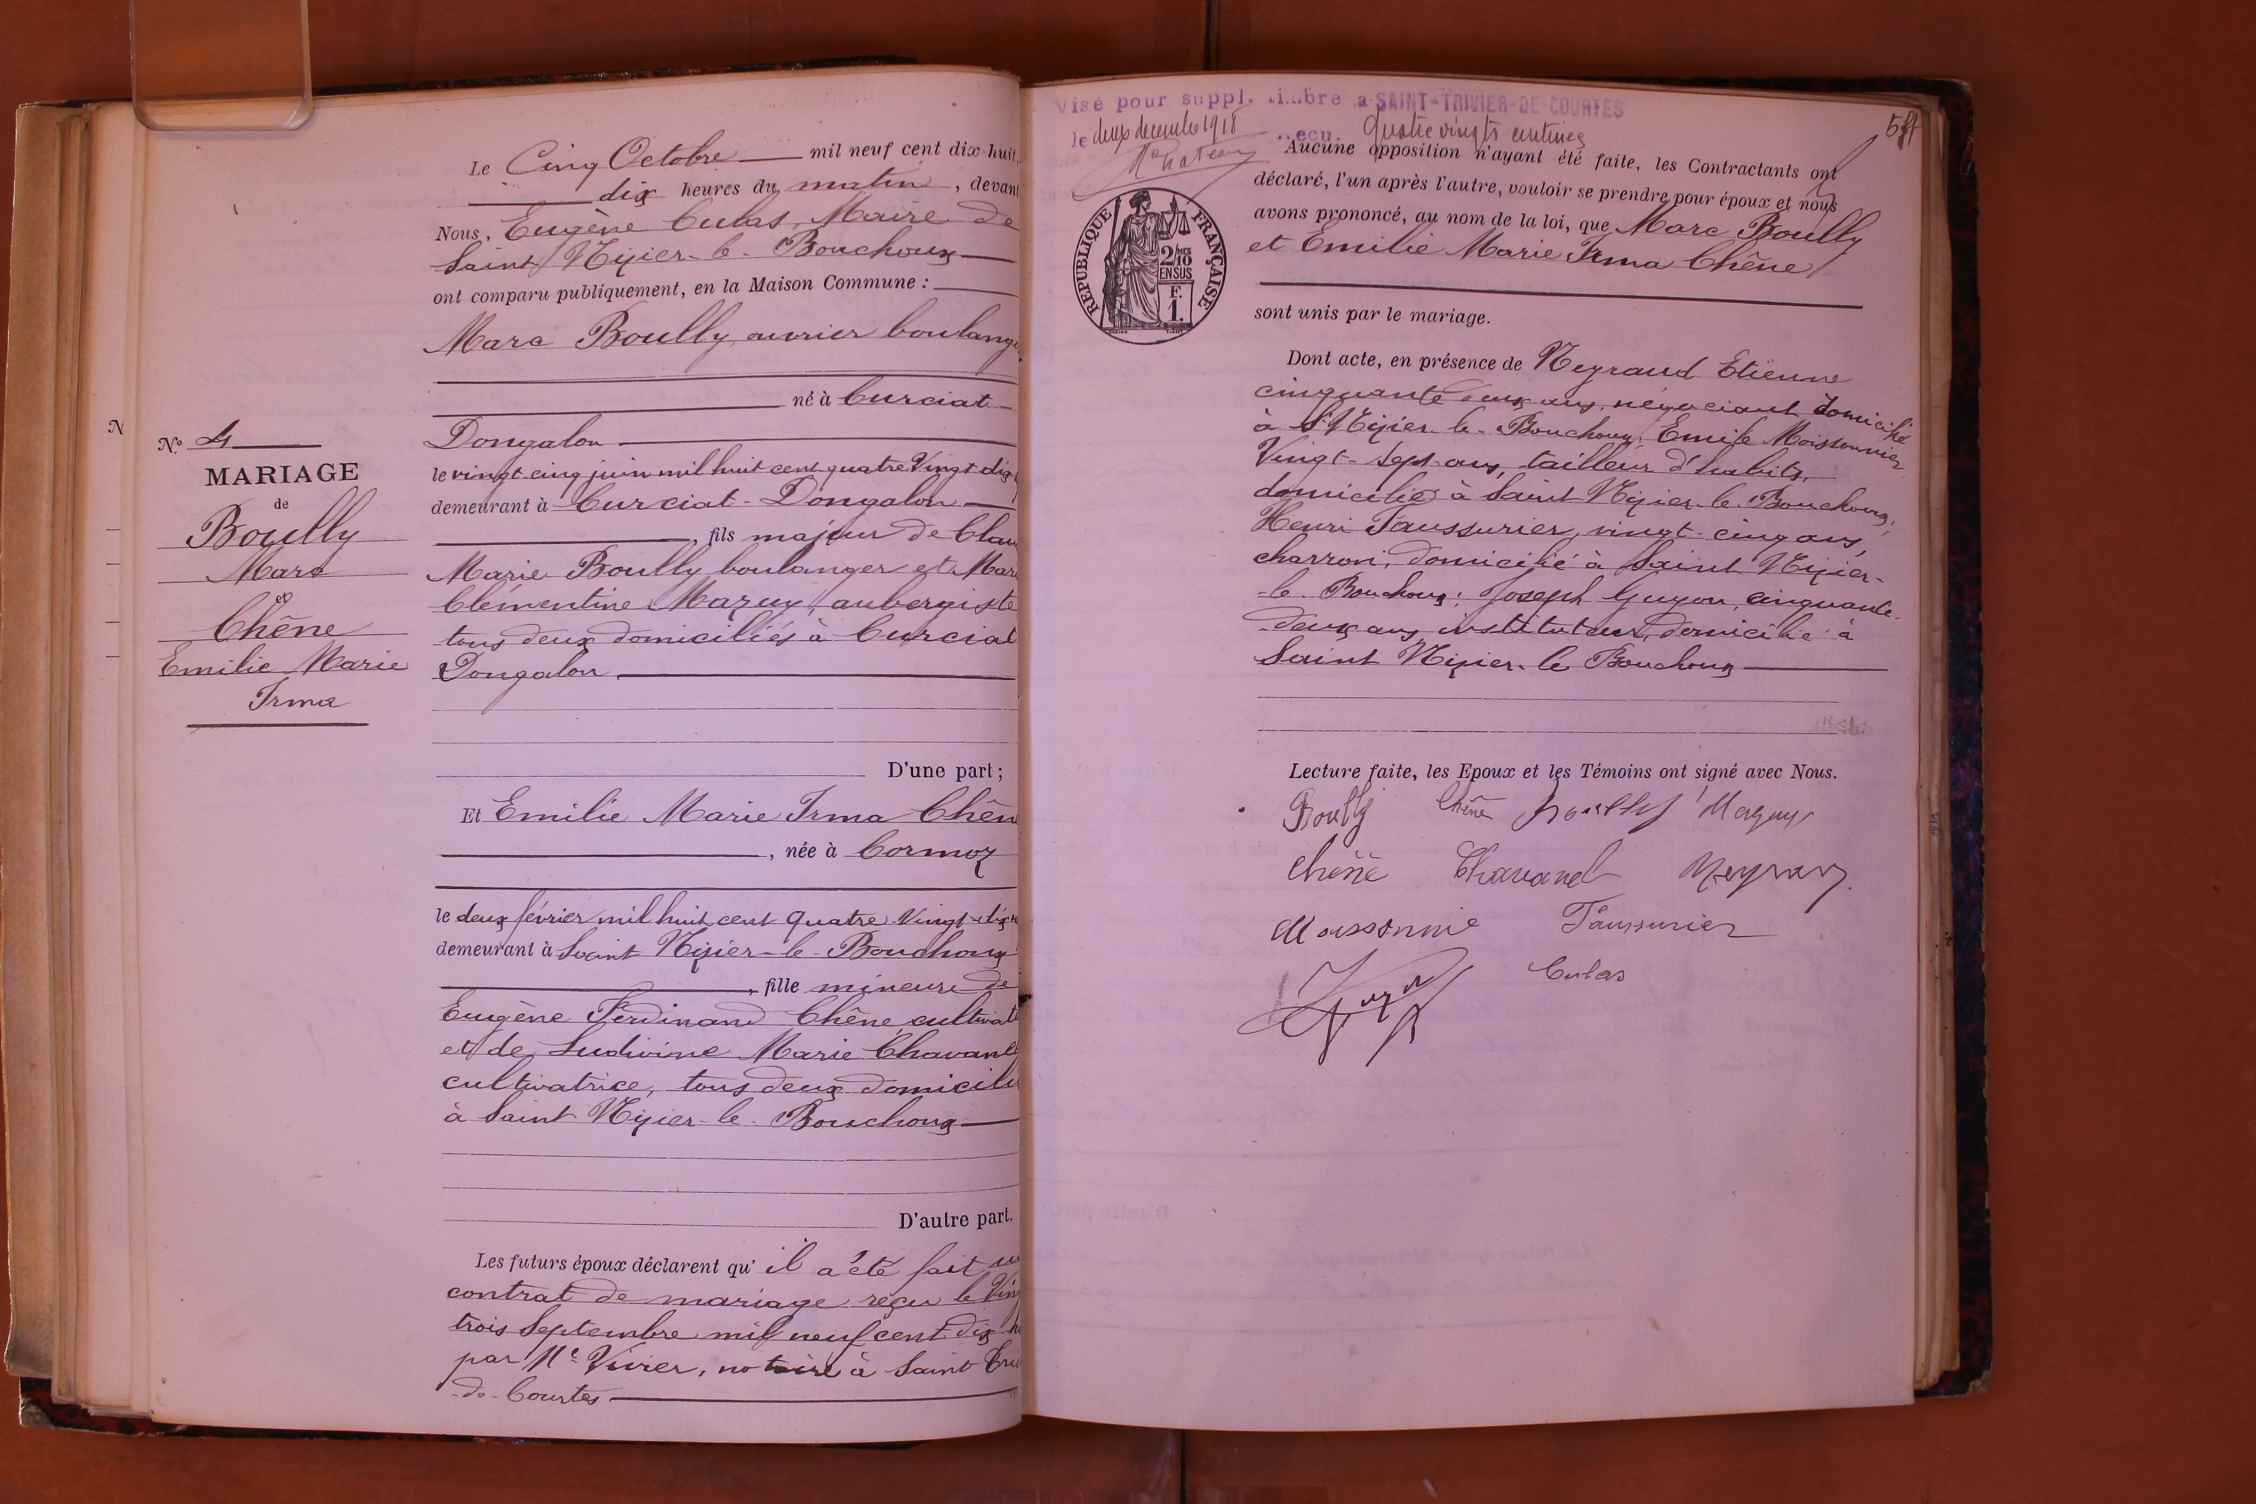 N
Nº 4
MARIAGE
de
Boully
Marc
et
Chêne
Emilie Marie
Irma
Le Cinq Octobre mil neuf cent dix-huit,
dix heures du matin, devant
Nous, Eugène Culas, Maire de
Saint Nizier-le-Bouchoux
ont comparu publiquement, en la Maison Commune :
Marc Boully, ouvrier boulang
né à Curciat-
Dongalon
le vingt-cinq juin mil huit cent quatre Vingt dix
demeurant à Curciat-Dongalon
, fils majeur de Clau
Marie Boully boulanger et de Mari
Clémentine Mazuy, aubergiste
tous deux domiciliés à Curciat
Dongalon
D'une part ;
Et Emilie Marie Irma Chên
, née à Cormoz
le deux février mil huit cent quatre Vingt-dix
demeurant à Saint Nizier-le-Bouchoux
, fille mineure de
Eugène Ferdinand Chêne, cultivat
et de Ludivine Marie Chavane
cultivatrice, tous deux domicili
à Saint Nizier-le-Bouchoux
D'autre part.
Les futurs époux déclarent qu' il a été fait un
contrat de mariage reçu le Vin
trois Septembre mil neuf cent dix h
par Me Vivier, notaire à Saint Tri
de-Courtes
Visé pour suppl. timbre a SAINT-TRIVIER-DE-COURTES
le deux decembre 1918
Reçu. Quatre vingts centimes
RÉPUBLIQUE FRANÇAISE
2/10
EN SUS
F.
1.
Aucune opposition n'ayant été faite, les Contractants ont
déclaré, l'un après l'autre, vouloir se prendre pour époux et nous
avons prononcé, au nom de la loi, que Marc Boully
et Emilie Marie Irma Chêne
sont unis par le mariage.
Dont acte, en présence de Neyraud Etienne
cinquante deux ans, négociant domicilié
à St Nizier-le-Bouchoux, Emile Moissonnier
Vingt-sept ans, tailleur d'habits,
domicilié à Saint Nizier-le-Bouchoux,
Henri Taussurier, vingt-cinq ans,
charron, domicilié à Saint Nizier-
-le-Bouchoux; Joseph Guyon, cinquante-
deux ans, instituteur, domicilié à
Saint Nizier-le Bouchoux
Lecture faite, les Epoux et les Témoins ont signé avec Nous.
Boully Chêne Boully Mazuy
Chêne Chavanel Neyraud
Moissonnie Taussurier
Guyon Culas